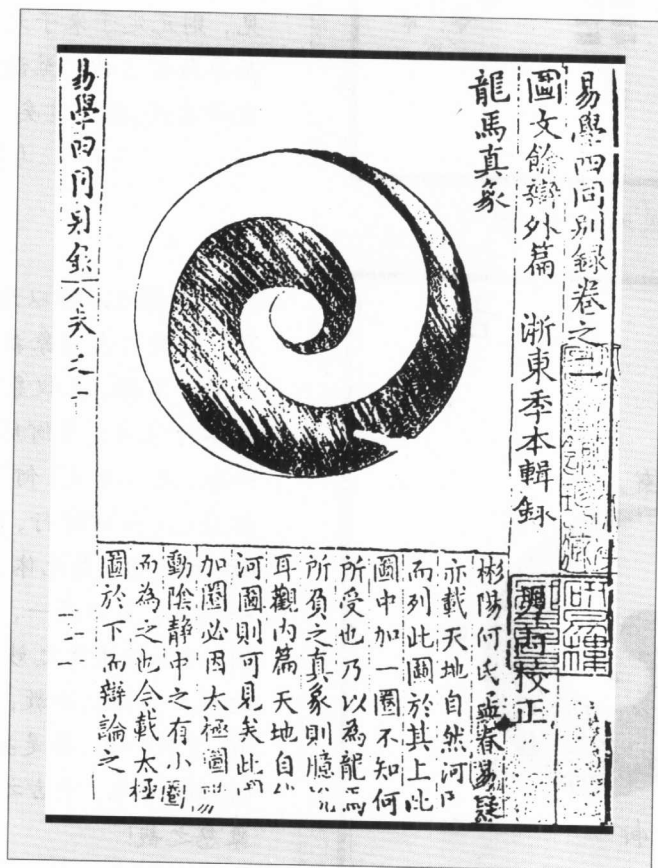 易學四同別錄卷之二
圖文餘辯外篇　浙東季本輯錄
校正
龍馬真象
彬陽何氏孟春易疑
亦載天地自然河
而列此圖於其上此
圖中加一圈不知何
所受也乃以為龍馬
所負之真象則臆說
耳觀內篇天地自
河圖則可見矣此
加圈必因太極圖陽
動陰靜中之有小圈
而為之也今載太極
圖於下而辯論之
易學四同別錄